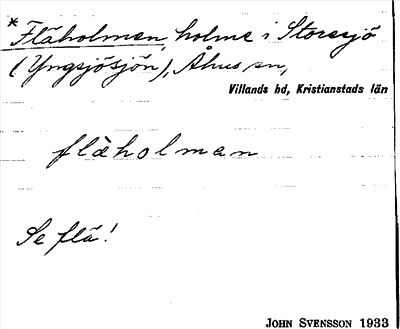 * Fläholmen, holme i Storesjö
(Yngsjösjön), Åhus sn,
Villands hd, Kristianstads län
flàholman
Se flä!
JOHN SVENSSON 1933